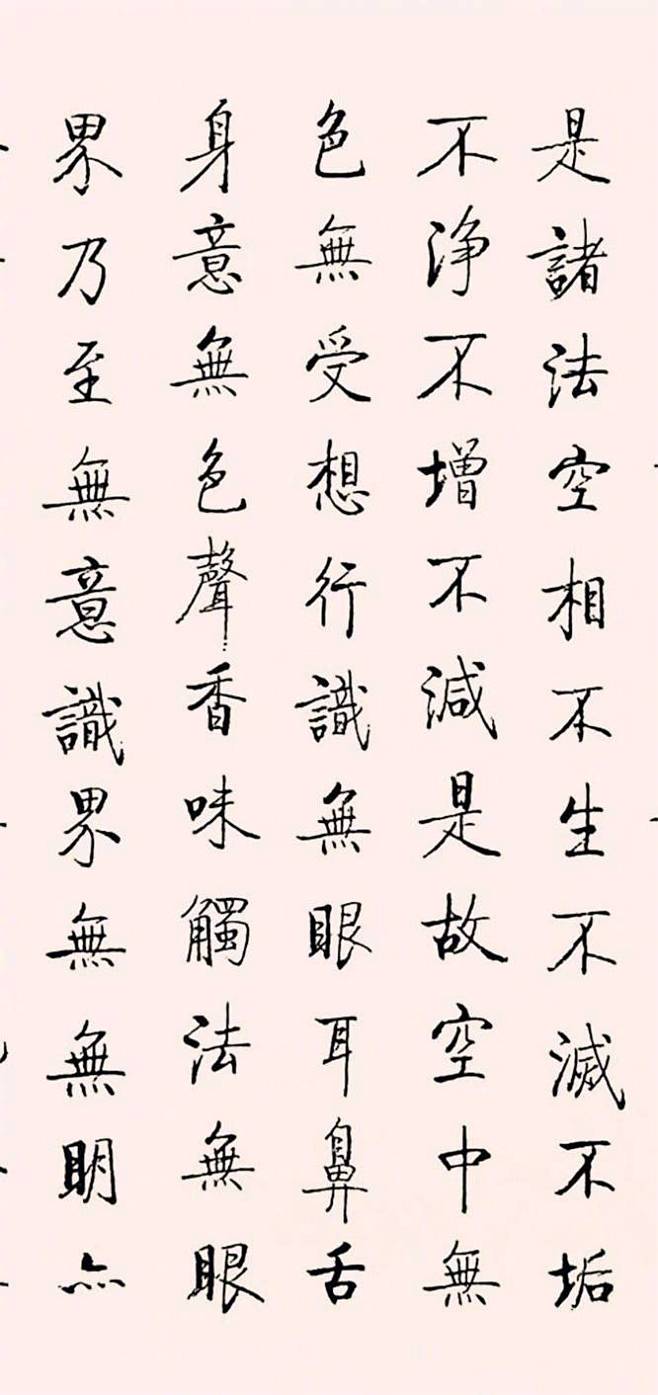 是諸法空相不生不滅不垢
不淨不增不減是故空中無
色無受想行識無眼耳鼻舌
身意無色聲香味觸法無眼
界乃至無意識界無無明亦